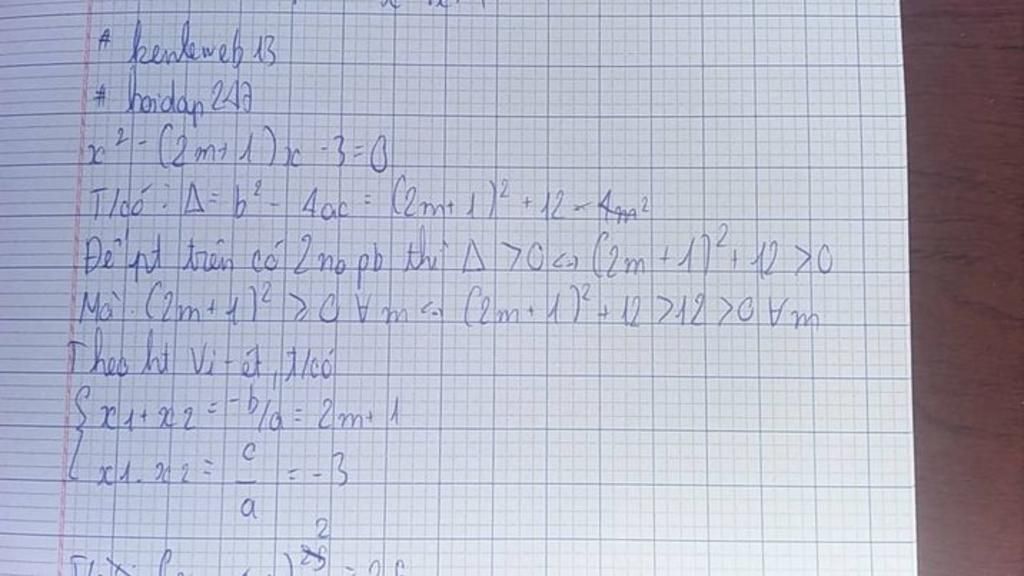 # kenleweb13
# hoidap247
x² - (2m+1)x - 3 = 0
T/có : Δ = b² - 4ac = (2m+1)² + 12 - 4m²
Để pt trên có 2 no pb thì Δ > 0 <=> (2m+1)² + 12 > 0
Mà (2m+1)² > 0 ∀ m <=> (2m+1)² + 12 > 12 > 0 ∀ m
Theo ht Vi-ét, t/có
{ x1 + x2 = -b/a = 2m+1
x1 . x2 = c/a = -3